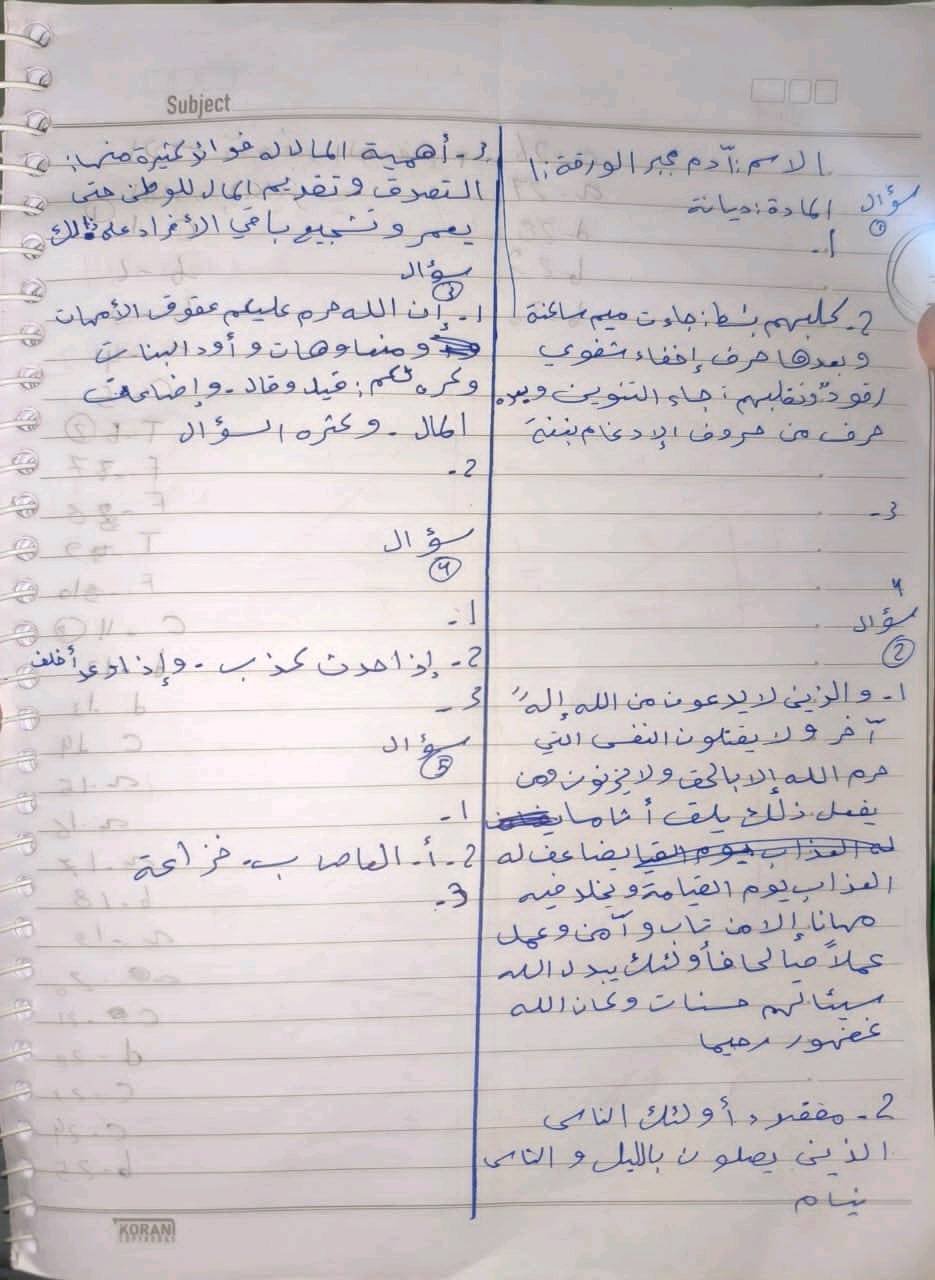 Subject
الاسم: آدم مجبر الورقة: 1
سؤال
①
المادة: ديانة
1-
2- كلبهم بسط: جاءت ميم ساكنة
وبعدها حرف إخفاء شفوي
رقودٌ ونقلبهم: جاء التنوين وبعده
حرف من حروف الإدغام بغنة
3-
4
سؤال
②
1- والذين لا يدعون من الله إلهً
آخر ولا يقتلون النفس التي
حرم الله إلا بالحق ولا يزنون ومن
يفعل ذلك يلق أثاما
له العذاب يوم القيا يضاعف له
العذاب يوم القيامة ويخلد فيه
مهانا إلا من تاب وآمن وعمل
عملاً صالحا فأولئك يبدل الله
سيئاتهم حسنات وكان الله
غفهور رحيما
2- أولئك الناس
الذين يصلون بالليل والناس
ينام
3- أهمية المال له فوائد كثيرة منها:
التصدق وتقديم المال للوطن حتى
يعمر وتشجيع باقي الأفراد على ذلك
سؤال
③
1- إن الله حرم عليكم عقوق الأمهات
ومنعاوهات وأود البنات
وكره لكم: قيل وقال - وإضاعت
المال - وكثره السؤال
2-
سؤال
④
1-
2- إذا حدث كذب - وإذا وعد أخلف
3-
سؤال
⑤
1-
2- أ- العاص ب- خزاعة
3-
KORAN